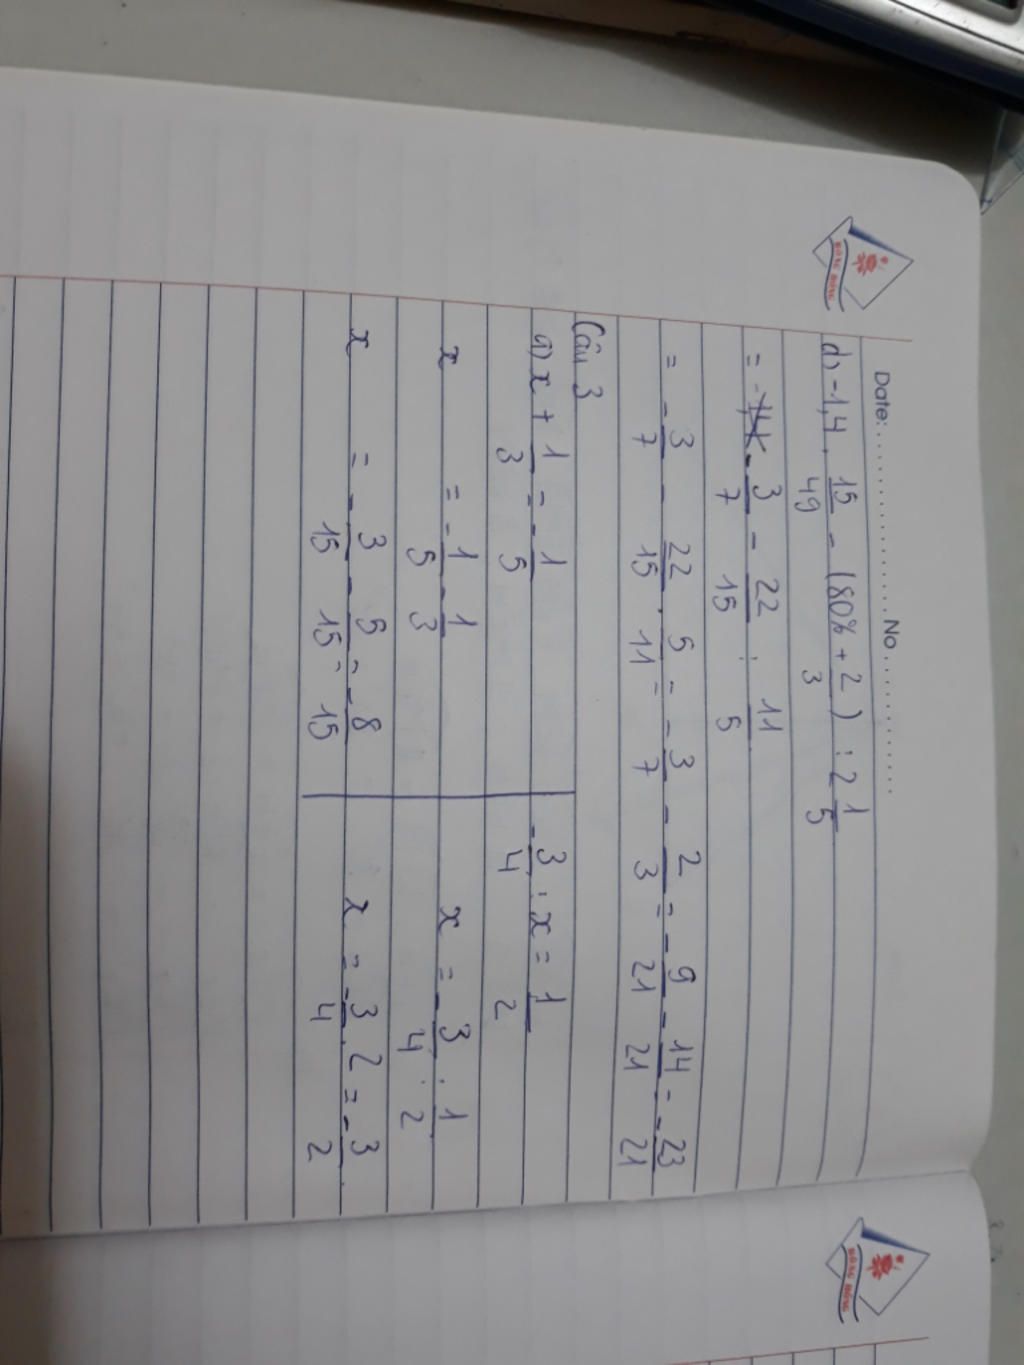 Date:..................No..................
d) -1,4 . 15/49 - (80% + 2/3) : 2 1/5
= - 3/7 - 22/15 : 11/5
= - 3/7 - 22/15 . 5/11 = - 3/7 - 2/3 = - 9/21 - 14/21 = - 23/21
Câu 3
a) x + 1/3 = - 1/5
x = - 1/5 - 1/3
x = - 3/15 - 5/15 = - 8/15
- 3/4 : x = 1/2
x = - 3/4 : 1/2
x = - 3/4 . 2 = - 3/2